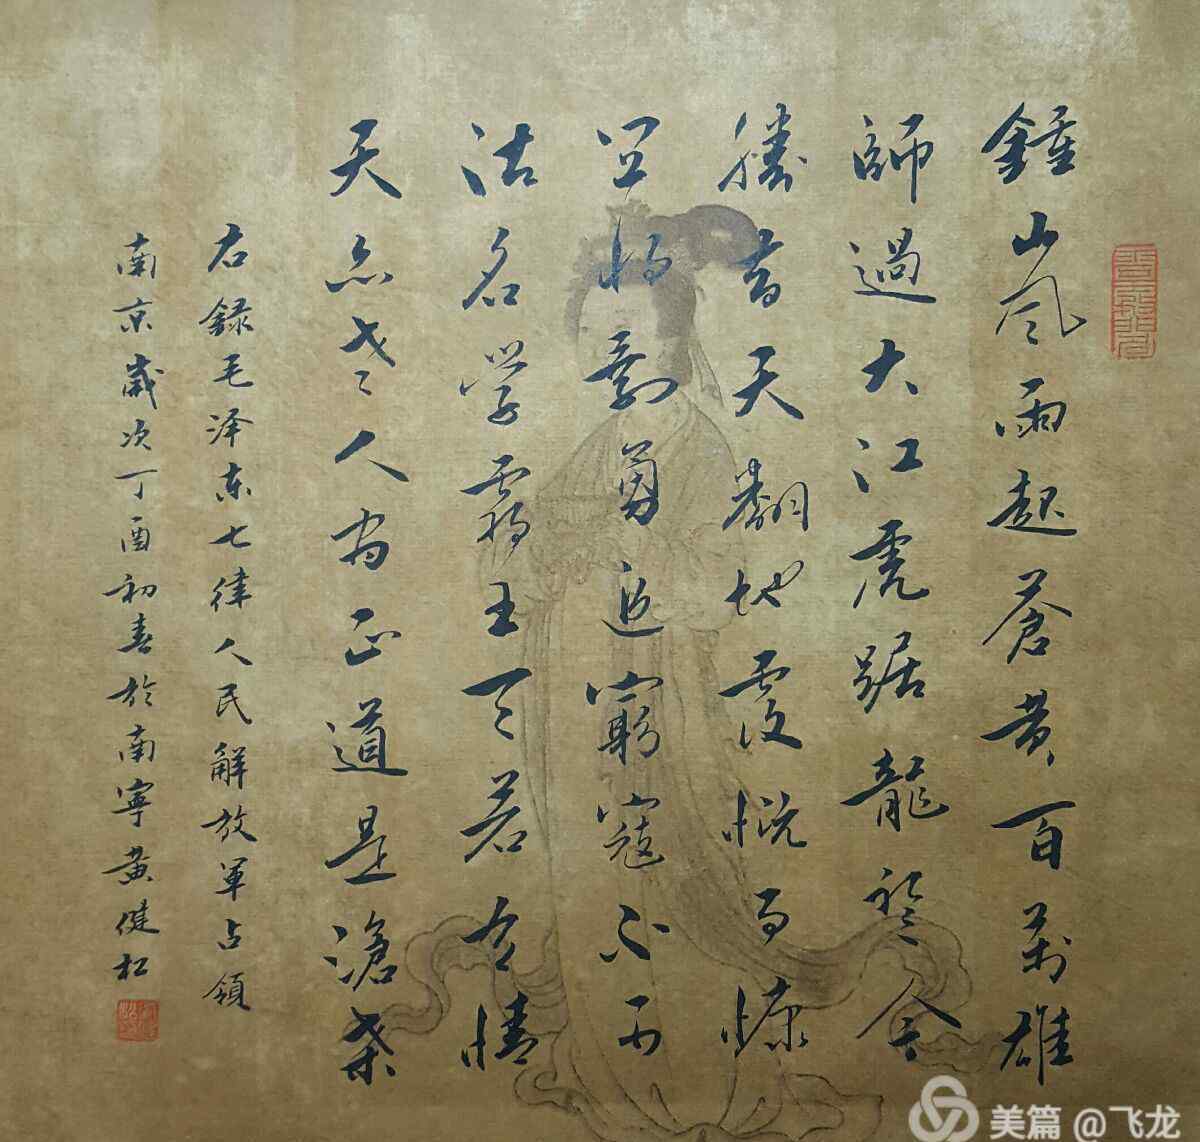 鍾山风雨起蒼黄百萬雄
師過大江虎踞龍盤今
勝昔天翻地覆慨而慷
宜将剩勇追窮寇不可
沽名学霸王天若有情
天亦老人间正道是滄桑
右録毛泽东七律人民解放軍占領
南京歲次丁酉初春於南寧黄健松
美篇 @飞龙